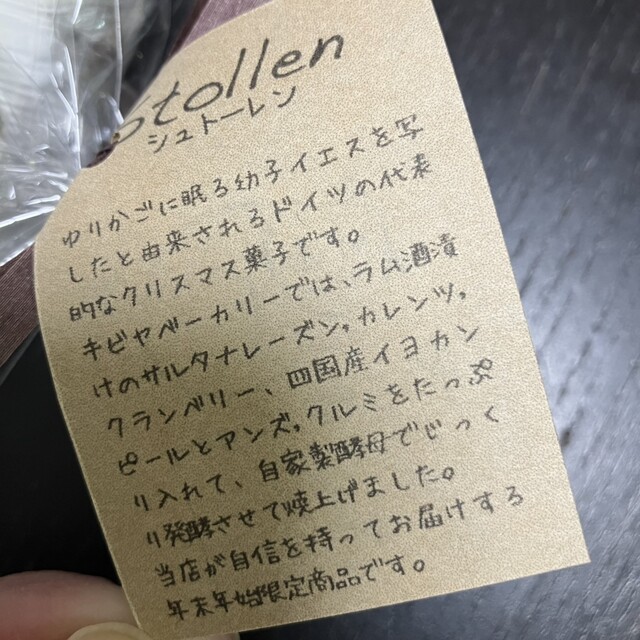 Stollen
シュトーレン
ゆりかごに眠る幼子イエスを写
したと由来されるドイツの代表
的なクリスマス菓子です。
キビヤベーカリーでは、ラム酒漬
けのサルタナレーズン,カレンツ,
クランベリー、四国産イヨカン
ピールとアンズ,クルミをたっぷ
り入れて、自家製酵母でじっく
り発酵させて焼上げました。
当店が自信を持ってお届けする
年末年始限定商品です。